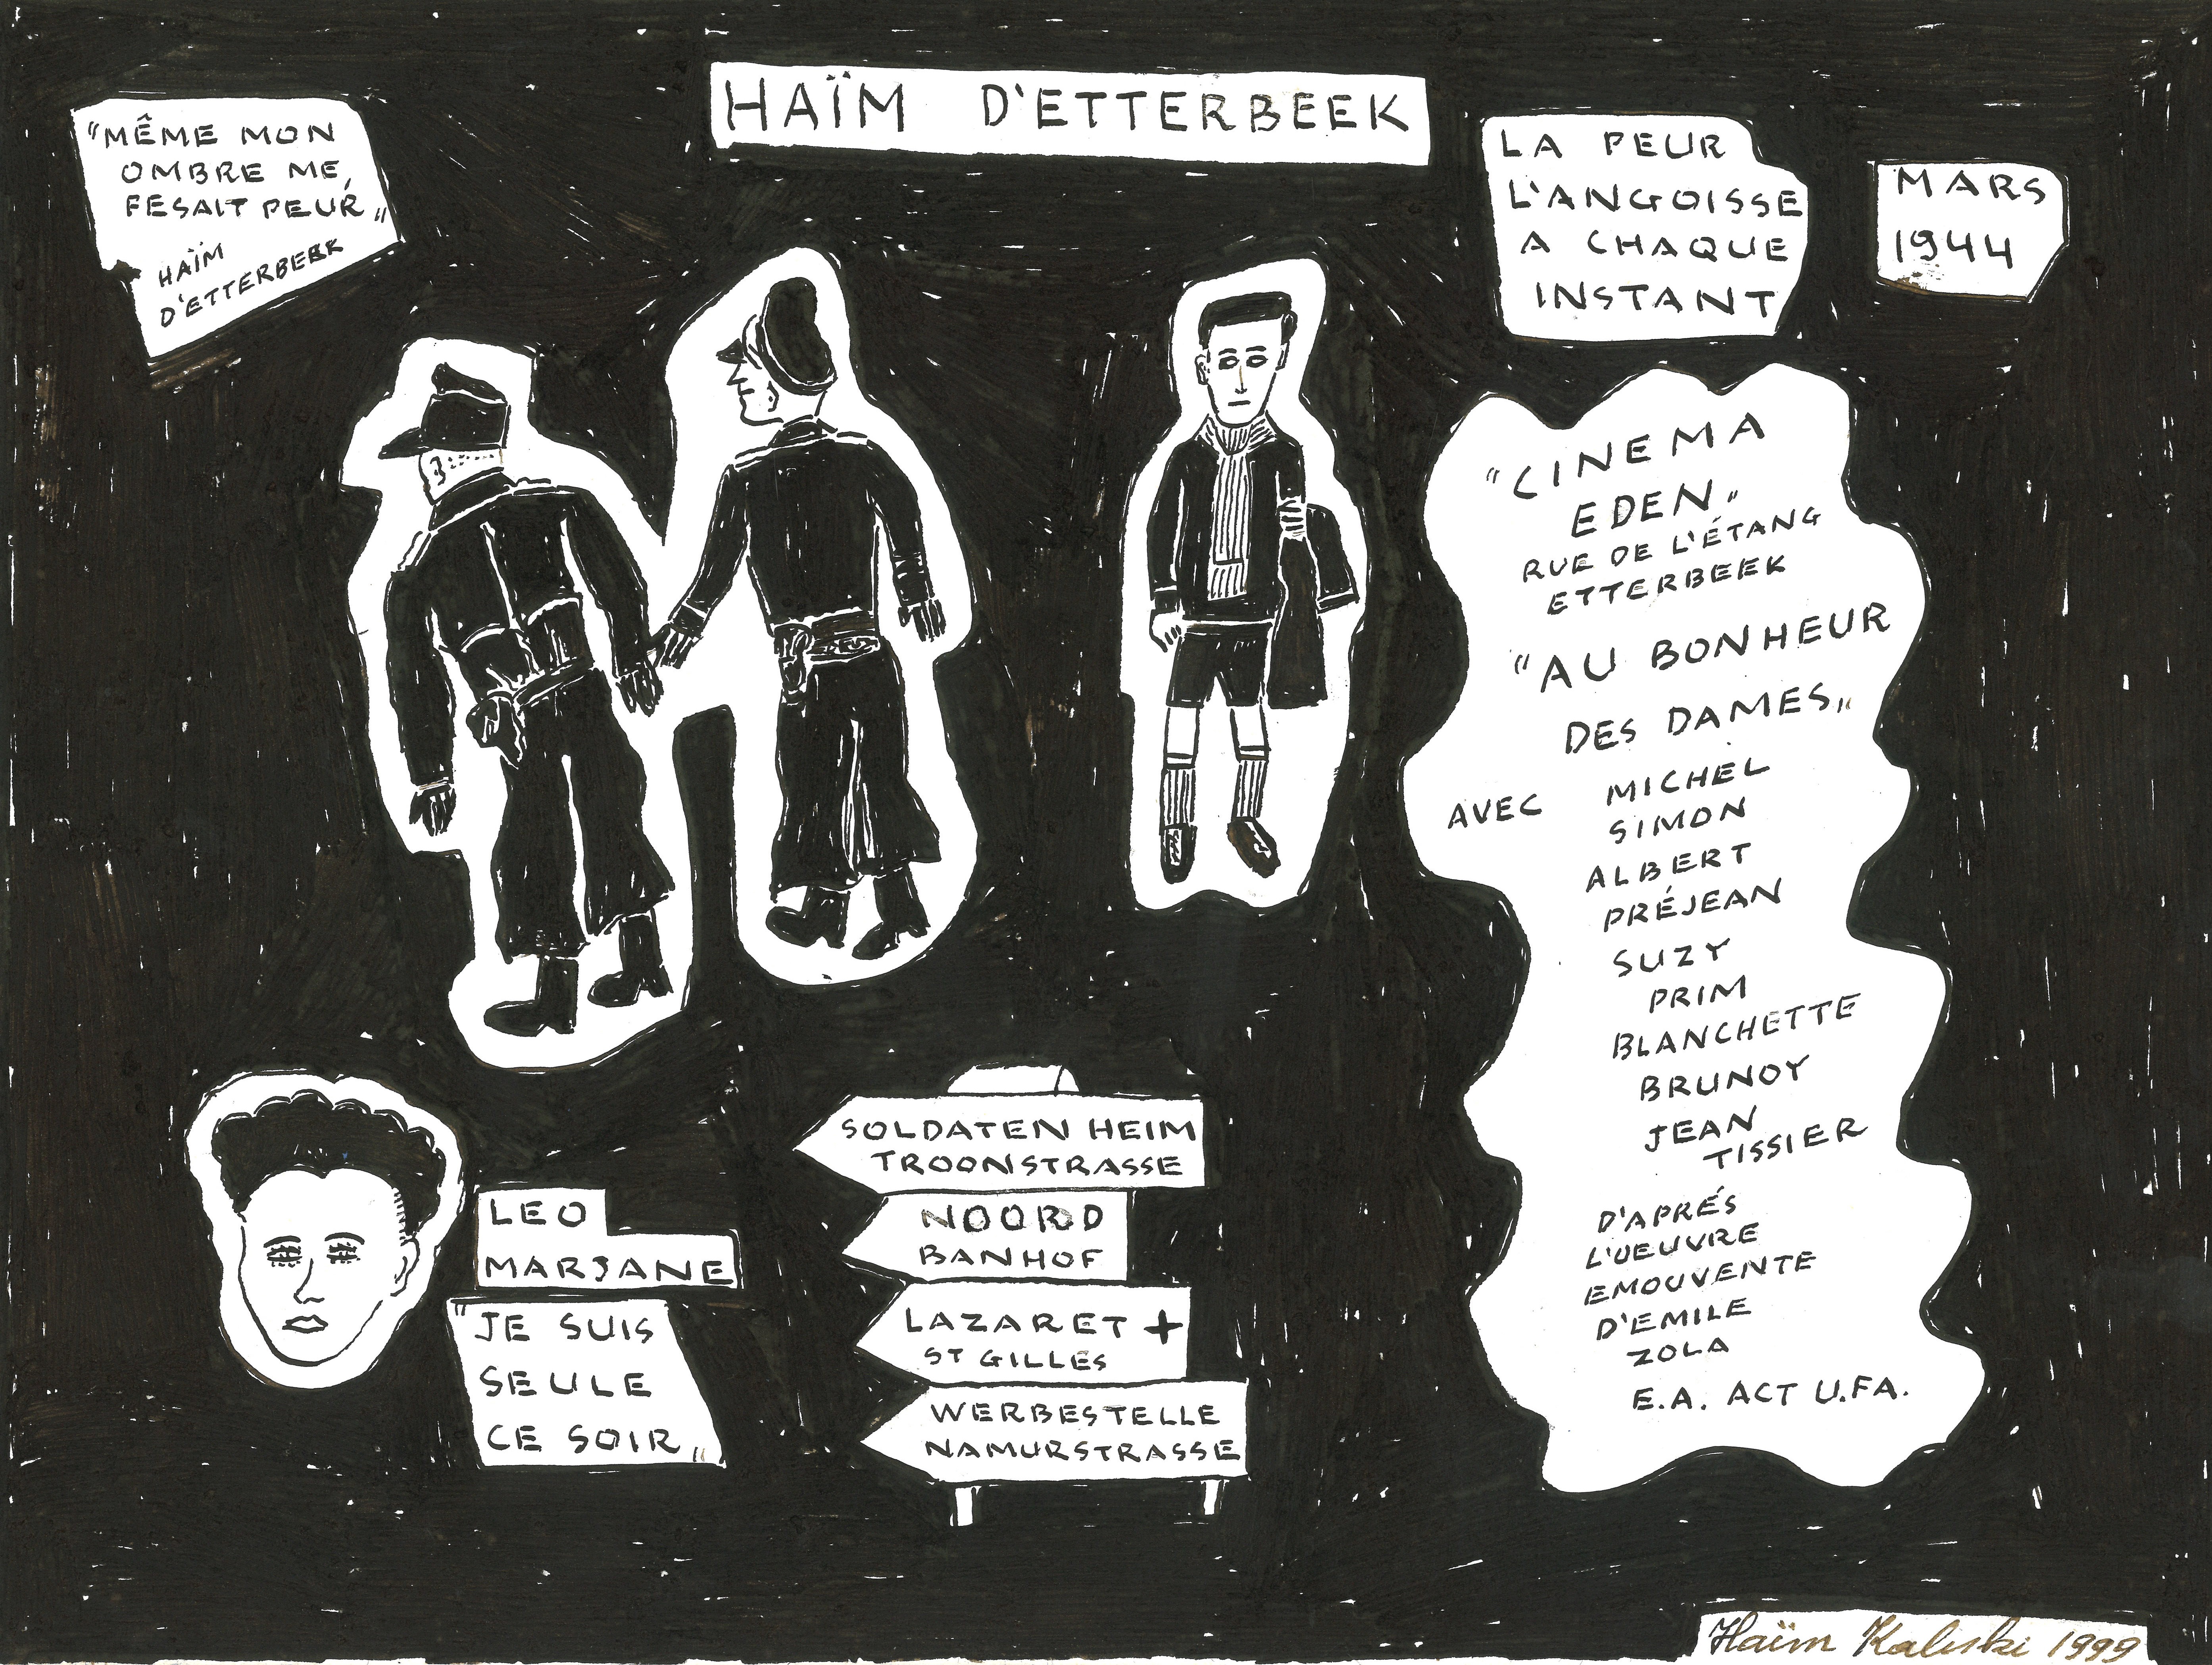 HAÏM D'ETTERBEEK
"MÊME MON
OMBRE ME
FESAIT PEUR"
HAÏM
D'ETTERBEEK
LA PEUR
L'ANGOISSE
A CHAQUE
INSTANT
MARS
1944
"CINEMA
EDEN"
RUE DE L'ÉTANG
ETTERBEEK
"AU BONHEUR
DES DAMES"
AVEC MICHEL
SIMON
ALBERT
PRÉJEAN
SUZY
PRIM
BLANCHETTE
BRUNOY
JEAN
TISSIER
D'APRÉS
L'OEUVRE
EMOUVENTE
D'EMILE
ZOLA
E.A. ACT U.FA.
LEO
MARJANE
"JE SUIS
SEULE
CE SOIR"
SOLDATEN HEIM
TROONSTRASSE
NOORD
BANHOF
LAZARET +
ST GILLES
WERBESTELLE
NAMURSTRASSE
Haïm Kaliski 1999